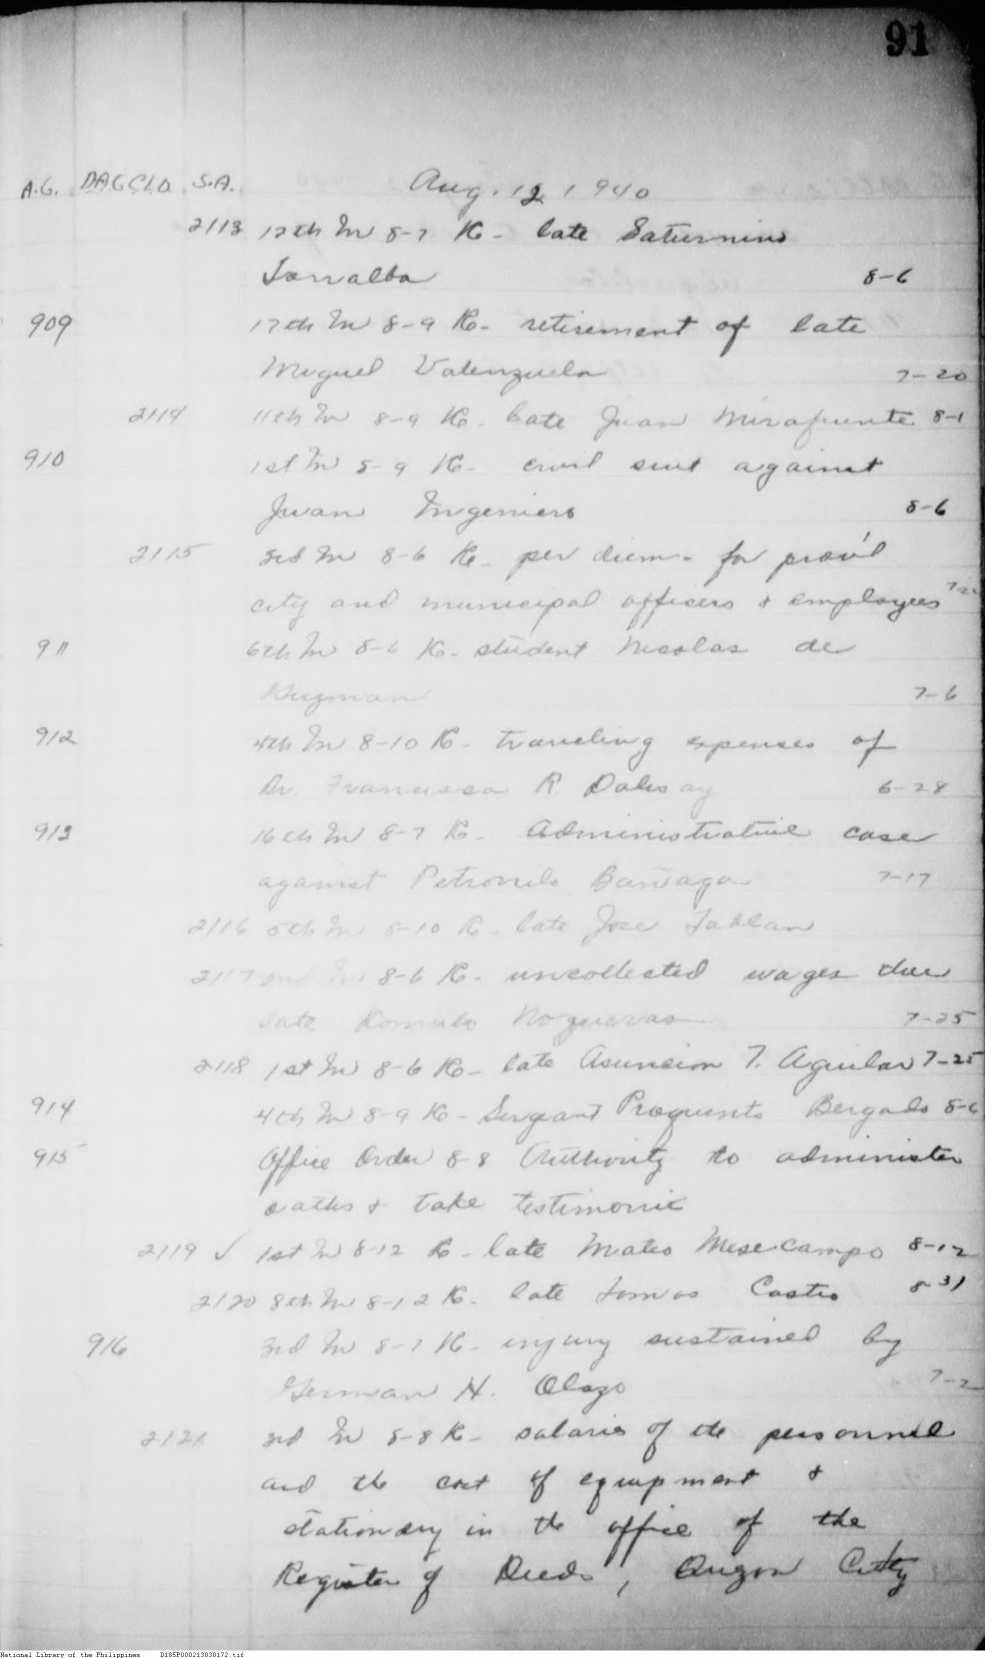 91
A.G. DAGCLD S.A. Aug. 12, 1940
2113 12th In 8-7 K- late Saturnino
Torralba 8-6
909 17th In 8-9 K- retirement of late
Miguel Valenzuela 7-20
2114 11th In 8-9 K- late Juan Mirafuente 8-1
910 1st In 8-9 K- civil suit against
Juan Ingeniero 8-6
2115 3rd In 8-6 K- per diem- for prov'l
city and municipal officers & employees
911 6th In 8-6 K- student Nicolas de
Guzman 7-6
912 4th In 8-10 K- traveling expenses of
Dr. Francisca R. Dalisay 6-28
913 16th In 8-7 K- Administrative case
against Petronilo Bañaga 7-17
2116 5th In 8-10 K- late Jose Tablan
2117 2nd In 8-6 K- uncollected wages due
late Romulo Nogueras 7-25
2118 1st In 8-6 K- late Asuncion T. Aguilar 7-25
914 4th In 8-9 K- Sergeant Bergado 8-6
915 Office Order 8-8 Authority to administer
oaths & take testimonie
2119 ✓ 1st In 8-12 K- late Mateo Mesecampo 8-12
2120 8th In 8-12 K- late Tomas Castro 8-31
916 3rd In 8-7 K- injury sustained by
German H. Olazo 7-2
2121 3rd In 8-8 K- salaries of the personnel
and the cost of equipment &
stationery in the office of the
Register of Deeds, Quezon City
National Library of the Philippines D185P000213030172.tif